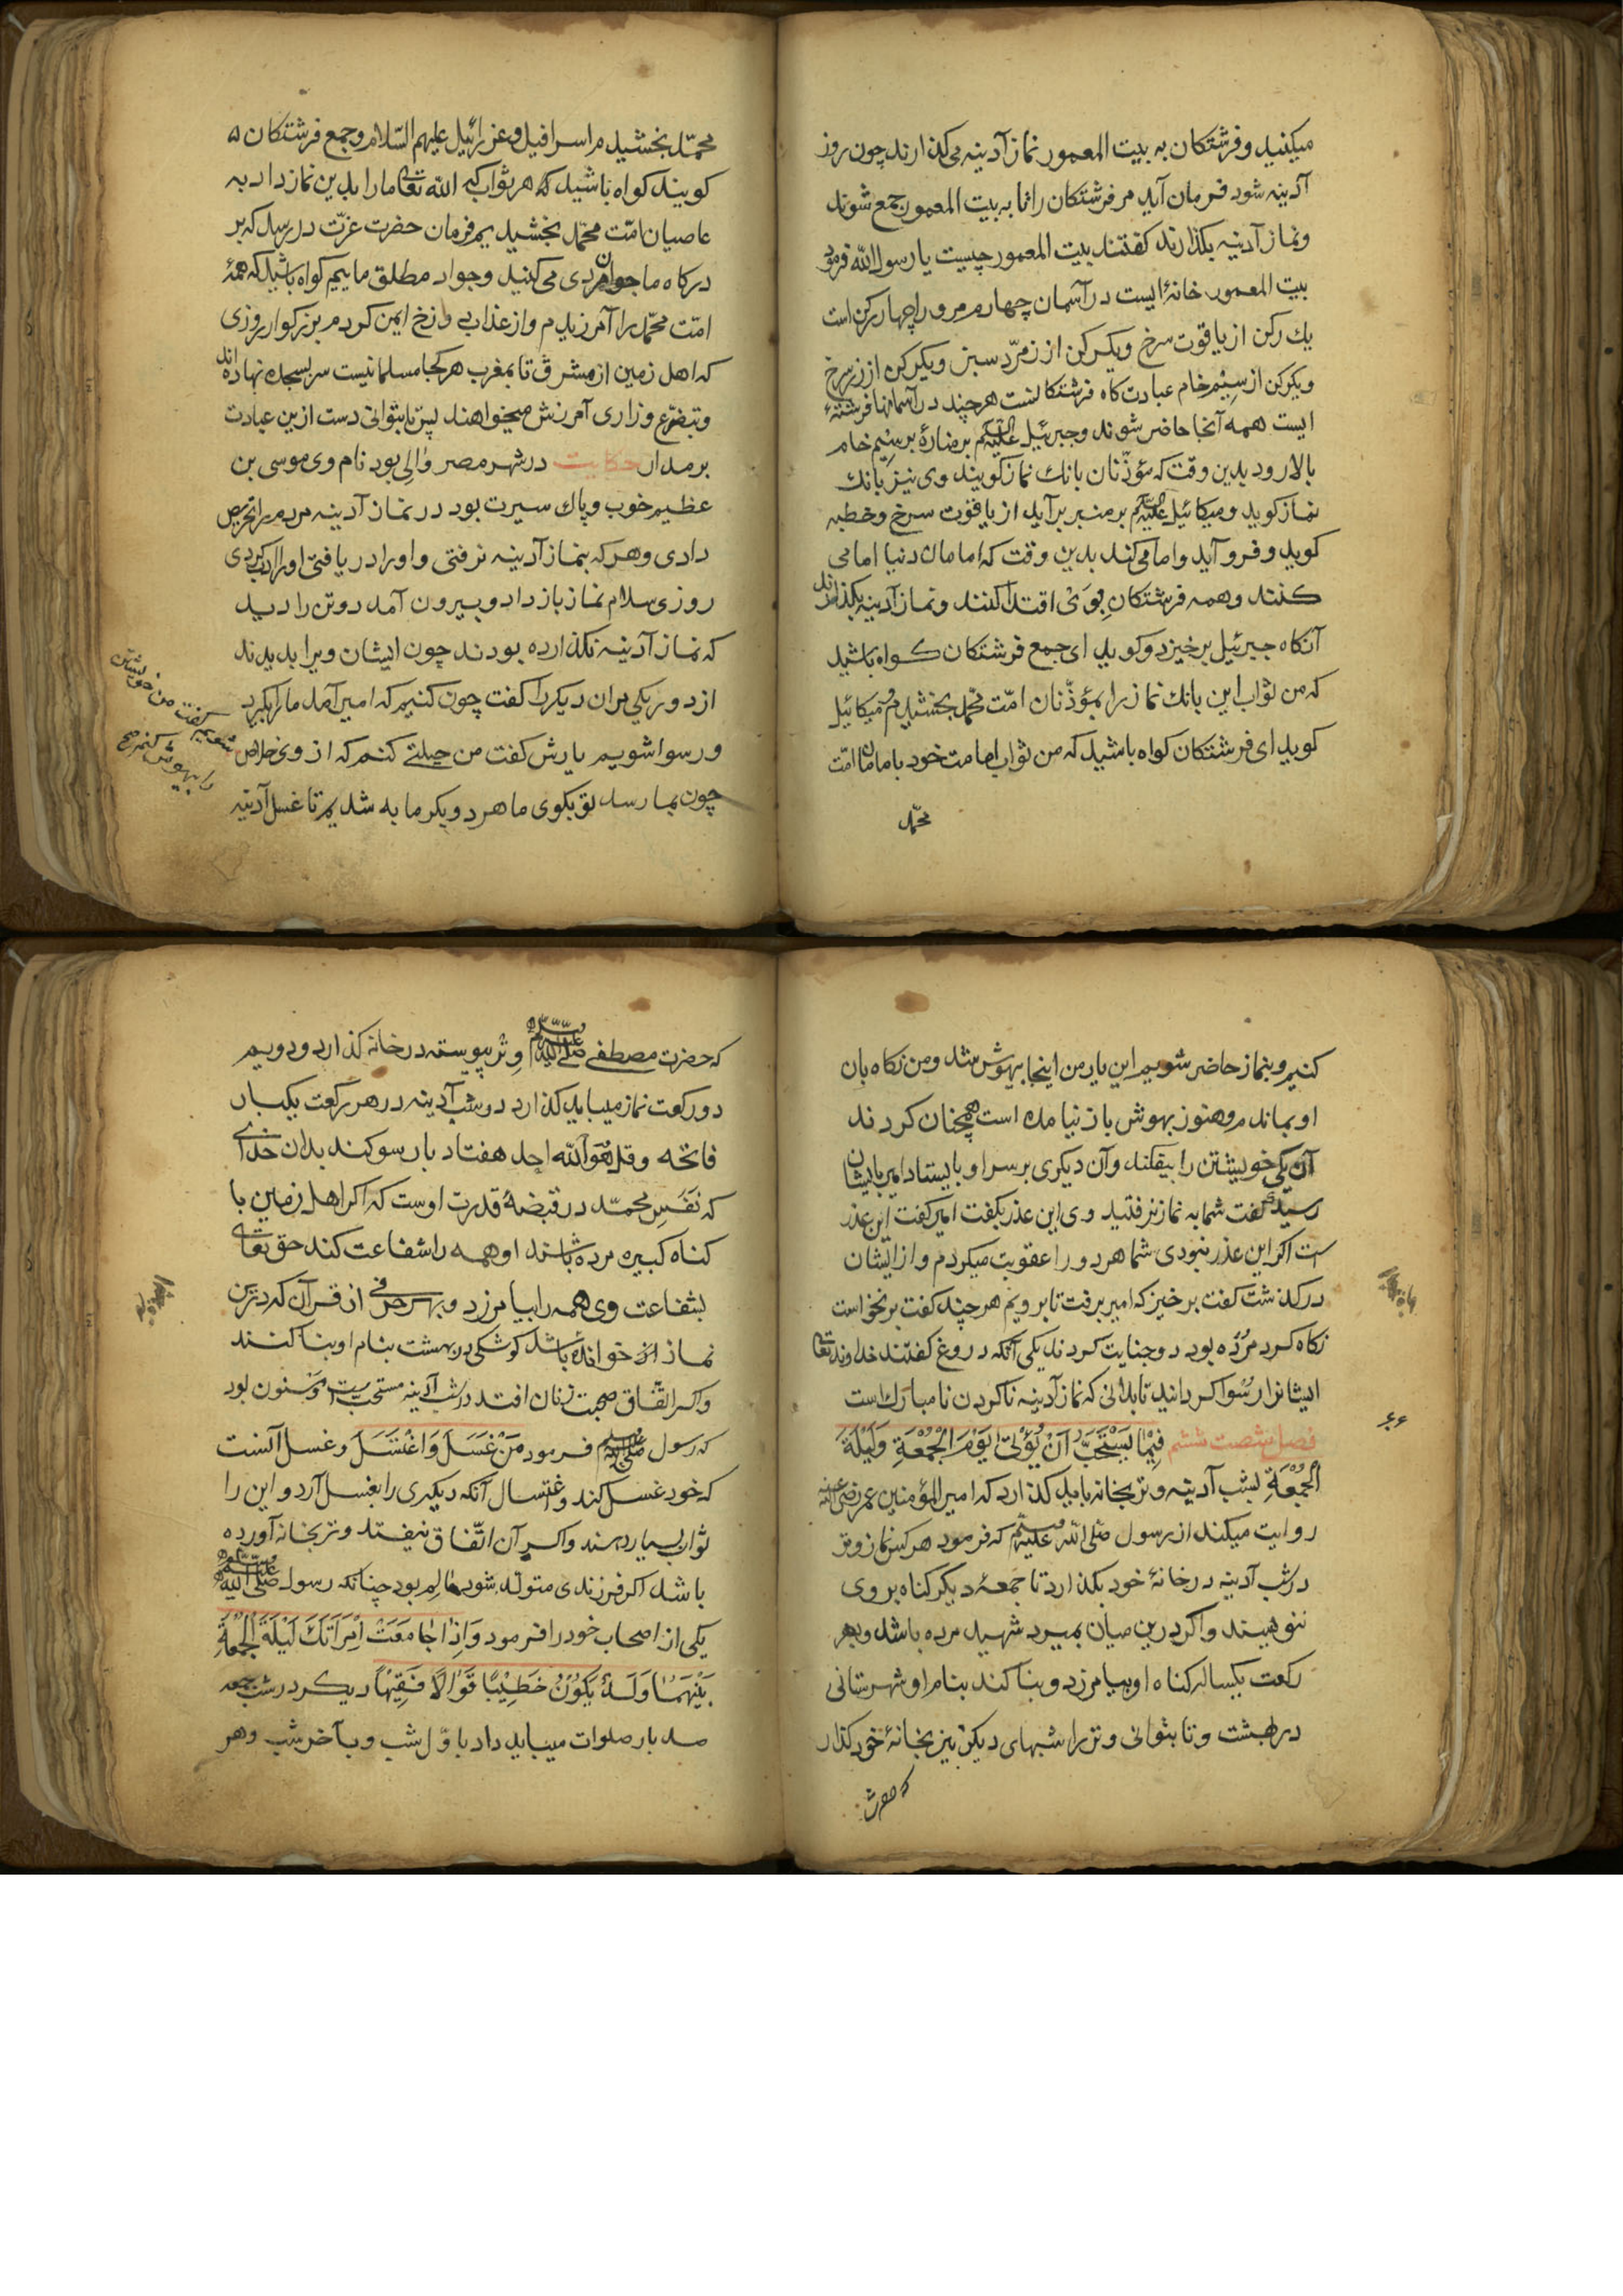 میکنید و فرشتکان به بیت المعمور نماز آدینه می کذارند چون روز
آدینه شود فرمان آید مر فرشتکان را تا به بیت المعمور جمع شوند
و نماز آدینه بکذارند کفتند بیت المعمور چیست یا رسول الله فرمود
بیت المعمور خانهٔ ایست در آسمان چهارم مرورا چهار رکن است
یك رکن از یاقوت سرخ و یکرکن از زمرّد سبز و یکرکن از زر سرخ
و یکرکن از سیم خام عبادت کاه فرشتکانست هرچند در آسمانها فرشتهٔ
ایست همه آنجا حاضر شوند و جبرئیل علیه السلم بر منارهٔ برسیم خام
بالا رود بدین وقت که مؤذّنان بانك نماز کویند وی نیز بانك
نماز کوید و میکائیل علیه السلم بر منبر برآید از یاقوت سرخ و خطبه
کوید و فرو آید و امامی کند بدین وقت که امامان دنیا امامی
کنند و همه فرشتکان بوی اقتدا کنند و نماز آدینه بکذارند
آنکاه جبرئیل برخیزد و کوید ای جمع فرشتکان کواه باشید
که من ثواب این بانك نماز را بمؤذّنان امّت محمّد بخشیدم و میکائیل
کوید ای فرشتکان کواه باشید که من ثواب امامت خود بامامان امّت
محمّد
محمّد بخشیدم اسرافیل و عزرائیل علیهم السّلام و جمع فرشتکان
کویند کواه باشید که هر ثوابی که الله تعالی ما را بدین نماز داد به
عاصیان امّت محمّد بخشیدیم فرمان حضرت عزّت در رسد که بر
درکاه ما جوانمردی می کنید و جواد مطلق ماییم کواه باشید که همهٔ
امّت محمّد را آمرزیدم و از عذاب دوزخ ایمن کردم بزرکوار روزی
که اهل زمین از مشرق تا بمغرب هرکجا مسلمانیست سر بسجده نهاده اند
و بتضرّع و زاری آمرزش میخواهند پس تا بتوانی دست ازین عبادت
بر مدار حکایت در شهر مصر والی بود نام وی موسی بن
عظیم خوب و پاك سیرت بود در نماز آدینه مردم را تحریص
دادی و هر که بنماز آدینه نرفتی و او را دریافتی او را ادب کردی
روزی سلام نماز باز داد و بیرون آمد دو تن را دید
که نماز آدینه نکذارده بودند چون ایشان ویرا بدیدند
از دور یکی مران دیکر را کفت چون کنیم که امیر آمد ما را بکیرد
و رسوا شویم یارش کفت من حیلتی کنم که از وی خلاص
شویم کفت من خویشتن
را بیهوش کنم
چون بما رسد تو بکوی ما هر دو بکرمابه شدیم تا غسل آدینه
کنیم و بنماز حاضر شویم این یار من اینجا بیهوش شد و من نکاه بان
او بماندم و هنوز بهوش باز نیامده است همچنان کردند
آن یکی خویشتن را بیفکند و آن دیکری بر سر او بایستاد امیر بایشان
رسید کفت شما به نماز نرفتید وی این عذر بکفت امیر کفت این عذر
ست اکر این عذر نبودی شما هر دو را عقوبت میکردم و از ایشان
درکذشت کفت برخیز که امیر برفت تا برویم هرچند کفت برنخواست
نکاه کرد مرده بود دو جنایت کردند یکی آنکه دروغ کفتند خداوند تعالی
ایشانرا رسوا کردانید تا بدانی که نماز آدینه ناکردن نامبارك است
۶۶
فصل شصت ششم فِیْمَا یَسْتَحَبُّ اَنْ یُؤْتیٰ یَوْمَ الْجُمُعَةِ وَلَیْلَةَ
الْجُمُعَةِ بشب آدینه وتر بخانه باید کذارد که امیر المؤمنین عمر رضی الله عنه
روایت میکند از رسول صلی الله علیه وسلم که فرمود هر کس نماز وتر
در شب آدینه در خانهٔ خود بکذارد تا جمعهٔ دیکر کناه بر وی
ننویسند و اکر درین میان بمیرد شهید مرده باشد و بهر
رکعت یکساله کناه او بیامرزد و بنا کند بنام او شهرستانی
در بهشت و تا بتوانی وتر را شبهای دیکر نیز بخانهٔ خود کذار
که حضرت
که حضرت مصطفی صلی الله علیه وسلم وتر پیوسته در خانه کذارد و دویم
دو رکعت نماز میباید کذارد در شب آدینه در هر رکعت یکبار
فاتحه و قل هو الله احد هفتاد بار سوکند بدان خدای
که نَفَسِ محمّد در قبضهٔ قدرت اوست که اکر اهل زمین با
کناه کبیره مرده باشند او همه را شفاعت کند حق تعالی
بشفاعت وی همه را بیامرزد و بهر حرفی از قرآن که درین
نماز خوانده باشد کوشکی در بهشت بنام او بنا کنند
و اکر اتّفاق صحبت زنان افتد در شب آدینه مستحبست و مسنون بود
که رسول صلی الله علیه وسلم فرمود مَنْ غَسَلَ وَاغْتَسَلَ و غسل آنست
که خود غسل کند و اغتسال آنکه دیکری را بغسل آرد و این را
ثواب بسیار دهند و اکر آن اتّفاق نیفتد و وتر بخانه آورده
باشد اکر فرزندی متولّد شود عالم بود چنانکه رسول صلی الله علیه وسلم
یکی از اصحاب خود را فرمود وَاِذَا جَامَعَتْ اِمْرَأَتَكَ لَیْلَةَ الْجُمُعَةِ
بَیْنَهُمَا وَلَدٌ یَكُوْنُ خَطِیْبًا قَوَّالًا فَقِیْهًا دیکر در شب جمعه
صد بار صلوات میباید داد باوّل شب و بآخر شب و هر